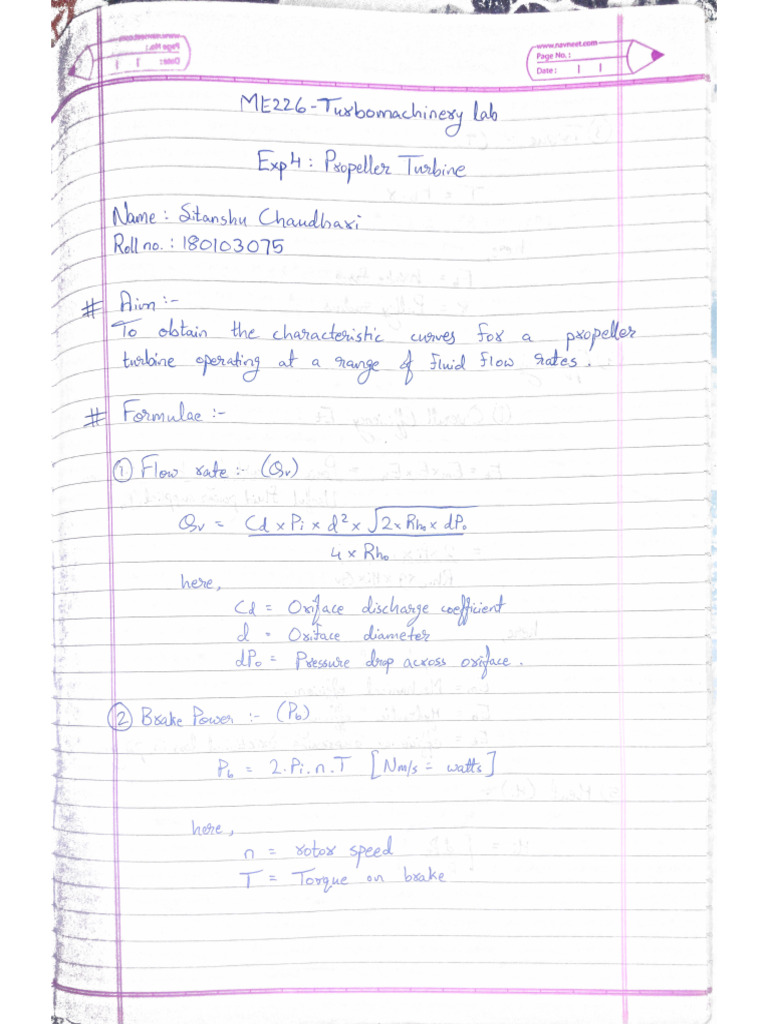 www.navneet.com
Page No. :
Date : | |
ME226-Turbomachinery lab
Exp 4 : Propeller Turbine
Name : Sitanshu Chaudhari
Roll no. : 180103075
# Aim :-
To obtain the characteristic curves for a propeller
turbine operating at a range of fluid flow rates.
# Formulae :-
① Flow rate :- (Qv)
Qv = Cd x Pi x d² x √2 x Rho x dPo
4 x Rho
here,
Cd = Oriface discharge coefficient
d = Oriface diameter
dPo = Pressure drop across oriface.
② Brake Power :- (Pb)
Pb = 2.Pi.n.T [Nm/s = watts]
here,
n = rotor speed
T = Torque on brake